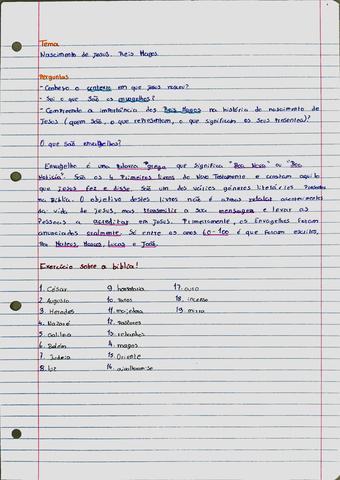 Tema
Nascimento de Jesus. Reis Magos
Perguntas
- Conheço o contexto em que Jesus nasceu?
- Sei o que são os envagelhos?
- Compreendo a importância dos Reis Magos na história do nascimento de
Jesus (quem são, o que representam, o que significam os seus presentes)?
O que são envagelhos?
Envagelho é uma palavra grega que significa "Boa Nova" ou "Boa
Notícia". São os 4 Primeiros livros do Novo Testamento e contam aquilo
que Jesus fez e disse. São um dos vários géneros literários Presentes
na Bíblia. O objetivo destes livros não é apenas relatar acontecimentos
da vida de Jesus, mas transmitir a sua mensagem e levar as
Pessoas a acreditar em Jesus. Primeiramente, os Envagelhos foram
anunciados oralmente. Só entre os anos 60-100 é que foram escritos,
Por Mateus, Marcos, Lucas e João.
Exercício sobre a bíblia!
1. César 9. hospedaria 17. ouro
2. Augusto 10. Panos 18. incenso
3. Herodes 11. majedora 19. mirra
4. Nazaré 12. Pastores
5. Galileia 13. rebanhos
6. Belém 4. magos
7. Judeia 15. Oriente
8. luz 16.